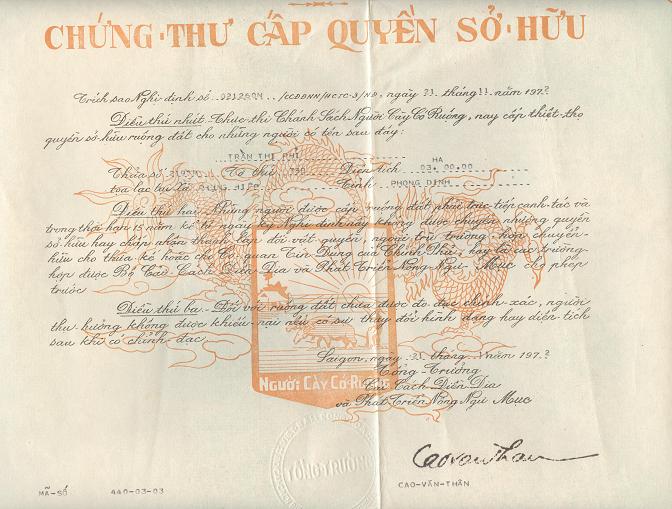 CHỨNG-THƯ CẤP QUYỀN SỞ-HỮU
Trích sao Nghị-định số /CCĐĐNN/HCTC-3/NĐ, ngày tháng 11 năm 197
Điều thứ nhứt.- Thực-thi Chánh Sách Người Cày Có Ruộng, nay cấp thiệt-thọ
quyền sở-hữu ruộng đất cho những người có tên sau đây:
TRẦN THỊ HA
Thửa số Tờ thứ 730 Diện Tích 03.00.00
tọa lạc tại Xã HIỆP Tỉnh PHONG DINH
Điều thứ hai.- Những người được cấp ruộng đất phải trực tiếp canh-tác và
trong thời hạn 15 năm kể từ ngày ký Nghị định này không được chuyển nhượng quyền
sở-hữu hay chấp nhận thành lập đối vật quyền, ngoại trừ trường-hợp chuyển-
hữu cho thừa kế hoặc cho Cơ-quan Tín Dụng của Chánh Phủ, hay là các trường-
hợp được Bộ Cải Cách Điền Địa và Phát Triển Nông Ngư Mục cho phép
trước.
Điều thứ ba.- Đối với ruộng đất chưa được đo đạc chính-xác, người
thụ-hưởng không được khiếu-nại nếu có sự thay đổi hình dạng hay diện-tích
sau khi có chỉnh-đạc.
Saigon, ngày tháng năm 197
Tổng-Trưởng
Cải Cách Điền Địa
NGƯỜI CÀY CÓ RUỘNG
và Phát Triển Nông Ngư Mục
TỔNG TRƯỞNG
Cao văn Thân
MÃ-SỐ 440-03-03
CAO-VĂN-THÂN